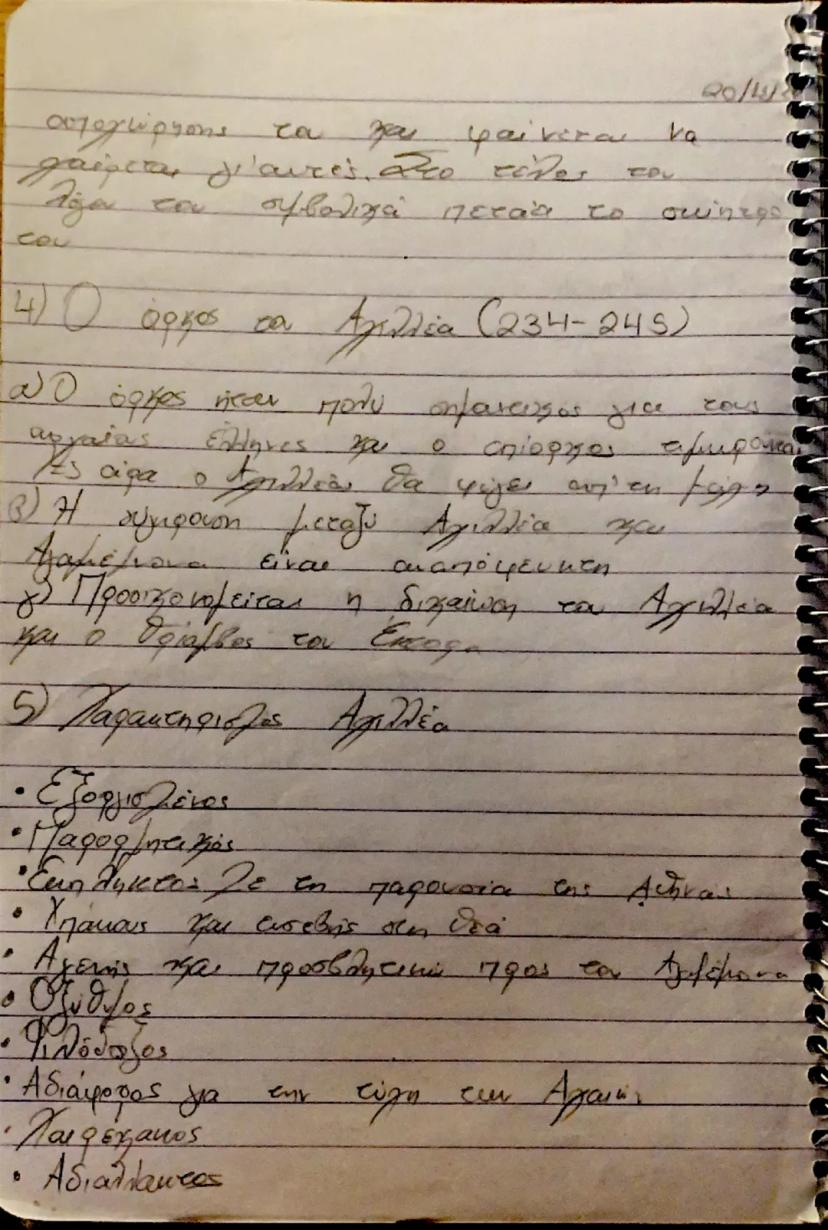 20/4/
αποχώρησης του και φαίνεται να
χαίρεται γι'αυτές. Στο τέλος του
λόγου του συμβολικά πετάει το σκήπτρο
του
4) Ο όρκος του Αχιλλέα (234-245)
α) Ο όρκος ήταν πολύ σημαντικός για τους
αρχαίους έλληνες και ο επίορκος τιμωρούνταν
άρα ο Αχιλλέας θα φύγει απ'τη μάχη
β) Η σύγκρουση μεταξύ Αχιλλέα και
Αγαμέμνονα είναι αναπόφευκτη
γ) Προοικονομείται η δικαίωση του Αχιλλέα
και ο θρίαμβος του Έκτορα
5) Χαρακτηρισμός Αχιλλέα
• Εξοργισμένος
• Παρορμητικός
• Έκπληκτος με τη παρουσία της Αθηνάς
• Υπάκουος και ευσεβής στη θεά
• Αγενής και προσβλητικός προς τον Αγαμέμνονα
• Οξύθυμος
• Φιλόδοξος
• Αδιάφορος για την τύχη των Αχαιών
• Χαιρέκακος
• Αδιάλλακτος